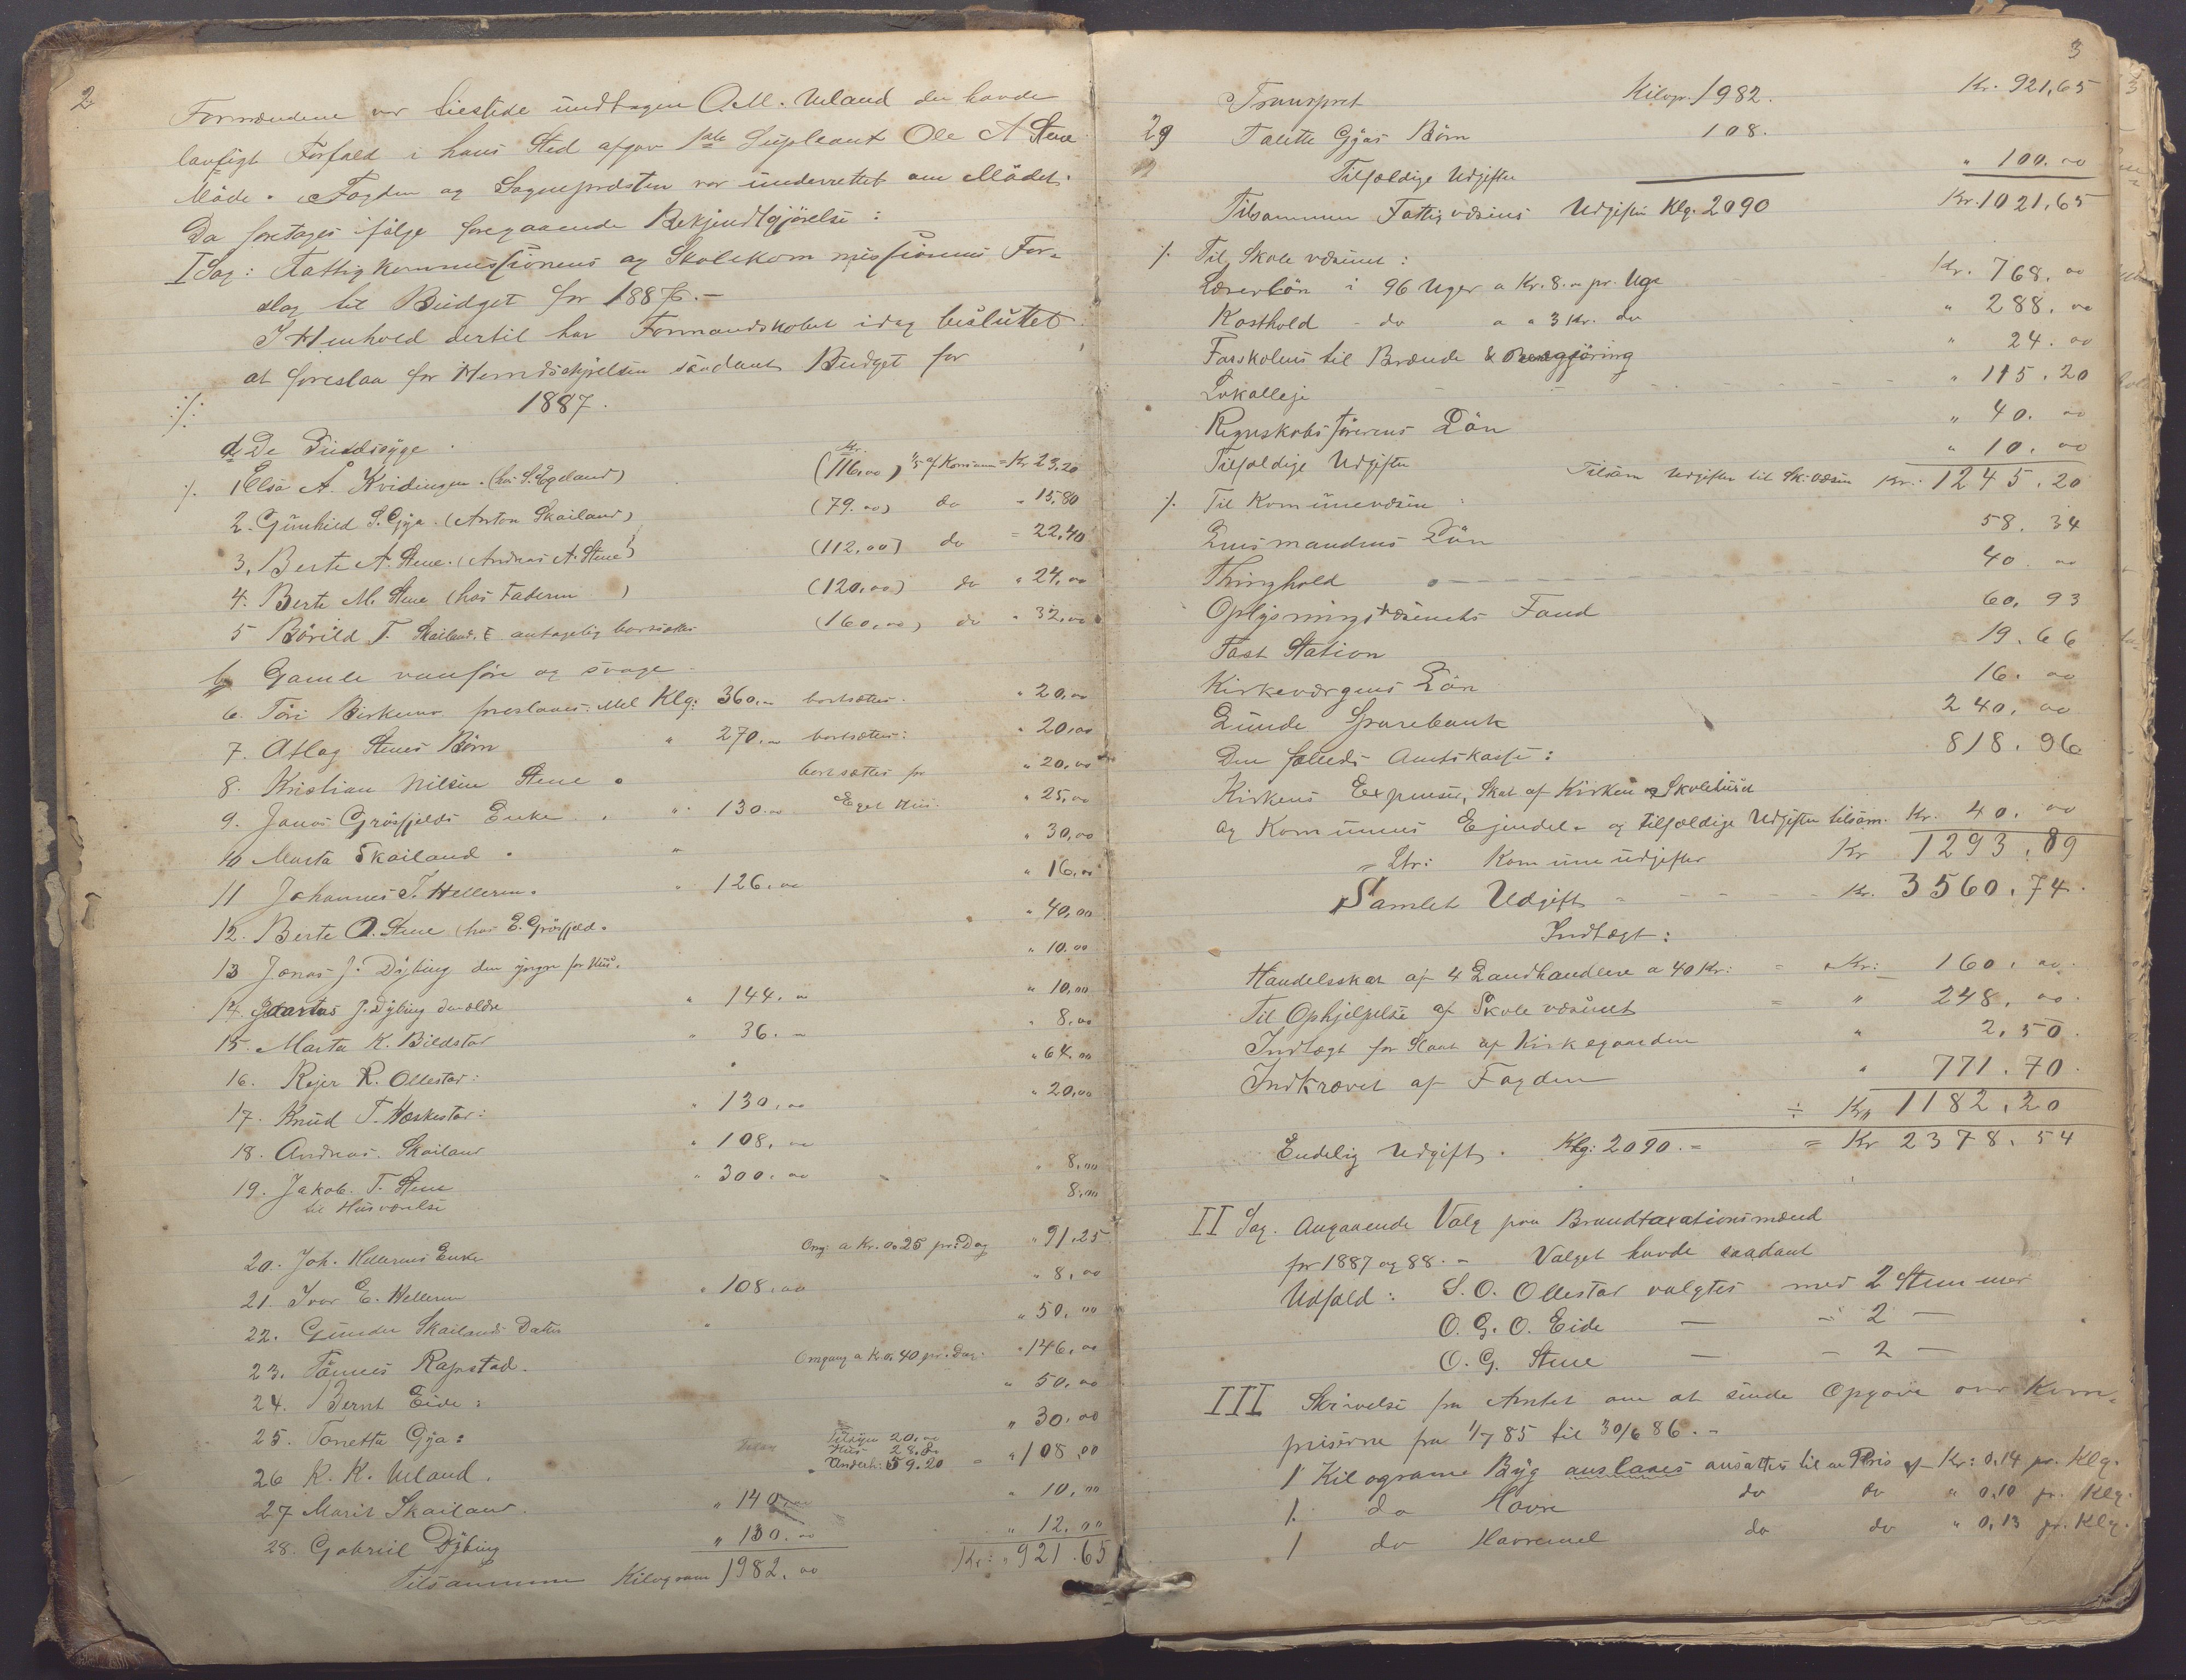 2
Formændene var tilstede undtagen O.M. Ueland der havde
lovligt Forfald i hans Sted afgav 1ste Supleant Ole A Stene
Möde. Fogden og Sogneprdsten var underrettet om Mödet.
Da foretages ifölge foregaaende Bekjendtgjörelse:
I Sag: Fattigkommissionens og Skolekommissionens For-
slag til Budget for 1887.-
I Henhold dertil har Formandskabet idag besluttet
at foreslaa for Herredsstyrelsen saadant Budget for
1887.
a, De Sindssyge.
1 Elsa A. Kvidingen. (hos S. Egeland) (116,00) 1/5 af Kommunen = Kr 23,20
2. Gunhild S. Gya. (Anton Skailand) (79.00) do " 15,80
3, Berte A. Stene. (Andreas A. Stene) (112,00) do = 22,40
4. Berte M. Stene (hos Faderen) (120,00) do " 24,00
5 Börild T. Skailand, antagelig bortsættes (160,00) do " 32,00
b, Gamle vanföre og svage
6. Töri Birkemo foreslaaes: Mel Klg: 360,- bortsættes. " 20,00
7. Aslag Stenes Börn " 270.- bortsættes: " 20,00
8. Kristian Nilsen Stene bortsættes for " 20,00
9. Jonas Grösfjelds Enke " 130.00 Eget Hus. " 25,00
10 Marta Skailand. " " 30,00
11 Johannes T. Hellern. " 126.00 " 16,00
12. Berte O. Stene (hos E. Grösfjeld. " 40,00
13 Jonas J. Dybing den yngre for Hus. " 10.00
14. J. Dybing den ældre " 144.00 " 10,00
15. Marta K. Bildstad " 36.- " 8,00
16. Rejer R. Ollestad: " 64.00
17. Knud T. Haskestad: " 130,00 " 20,00
18. Andreas. Skailand " 108,00
19. Jakob. T. Stene " 300.00 " 8,00
til Husværelse 8,00
20. Joh. Hellerens Enke Omg. a Kr. 0.25 pr. Dag " 91.25
21. Ivar E. Helleren " 108,00 " 8,00
22. Gunder Skailands Datter " " 50,00
23. Tönnes Rapstad. Omgang a Kr. 0,40 pr. Dag. " 146,00
24. Bernt Eide: " 50,00
25. Tonetta Gya: " 30.00
26 K. K. Ueland. Tilsyn 20,00 Hus 28.80 Underh: 59.20 = " 108,00
27 Marit Skailand. " 140,00 " 10,00
28. Gabriel Dybing " 130.00 " 12.00
Tilsammen Kilogram 1982.00 Kr: " 921.65
3
Transport Kilogr. 1982. Kr. 921,65
29 Talette Gyas Börn 108.
Tilfældige Udgifter " 100.00
Tilsammen Fattigvæsenes Udgifter Klg. 2090 Kr. 1021,65
Til Skolevæsenet:
Lærerlön i 96 Uger a Kr. 8.- pr. Uge Kr. 768.00
Kosthold - do a " 3 Kr. do " 288.00
Fasskolens til Brænde & Rengjöring " 24.00
Lokalleje " 115.20
Regnskabsförerens Lön " 40.00
Tilfældige Udgifter " 10.00
Tilsam Udgifter til Sk: væsen Kr. 1245.20
Til Komunevæsen:
Lensmandens Lön 58.34
Thinghold 40.00
Oplysningsvæsenets Fond 60,93
Fast Station 19.66
Kirkeværgens Lön 16.00
Lunde Sparebank 240.00
Den fælleds Amtskasse: 818.96
Kirkens Expenser, Skat af Kirken og Skolehuset
og Komunens Ejendel- og tilfældige Udgifter tilsam. Kr. 40.00
Ltr: Komuneudgifter Kr 1293,89
Samlet Udgift - - Kr. 3560.74.
Indtægt:
Handelsskat af 4 Landhandlere a 40 Kr: = Kr: 160.00
Til Ophjelpelse af Skolevæsenet = " 248.00
Indtægt for Slaat af Kirkegaarden " 2,50.
Indkrævet af Fogden " 771.70.
÷ Kr, 1182.20
Endelig Udgift. Klg: 2090.= = Kr 2378.54
II Sag. Angaaende Valg paa Brandtaxationsmænd
for 1887 og 88.- Valget havde saadant
Udfald: S. O. Ollestad valgtes med 2 Stemmer
O. G. O. Eide — - 2 —
O. G. Stene — - 2 —
III Skrivelse fra Amtet om at sende Opgave over Korn-
priserne fra 1/7 85 til 30/6 86.-
1 Kilograme Byg anslaaes ansættes til en Pris af Kr: 0,14 pr. Klg.
1. do Havre do do " 0,10 pr. Klg.
1 do Havremel do do " 0,13 pr. Klg.